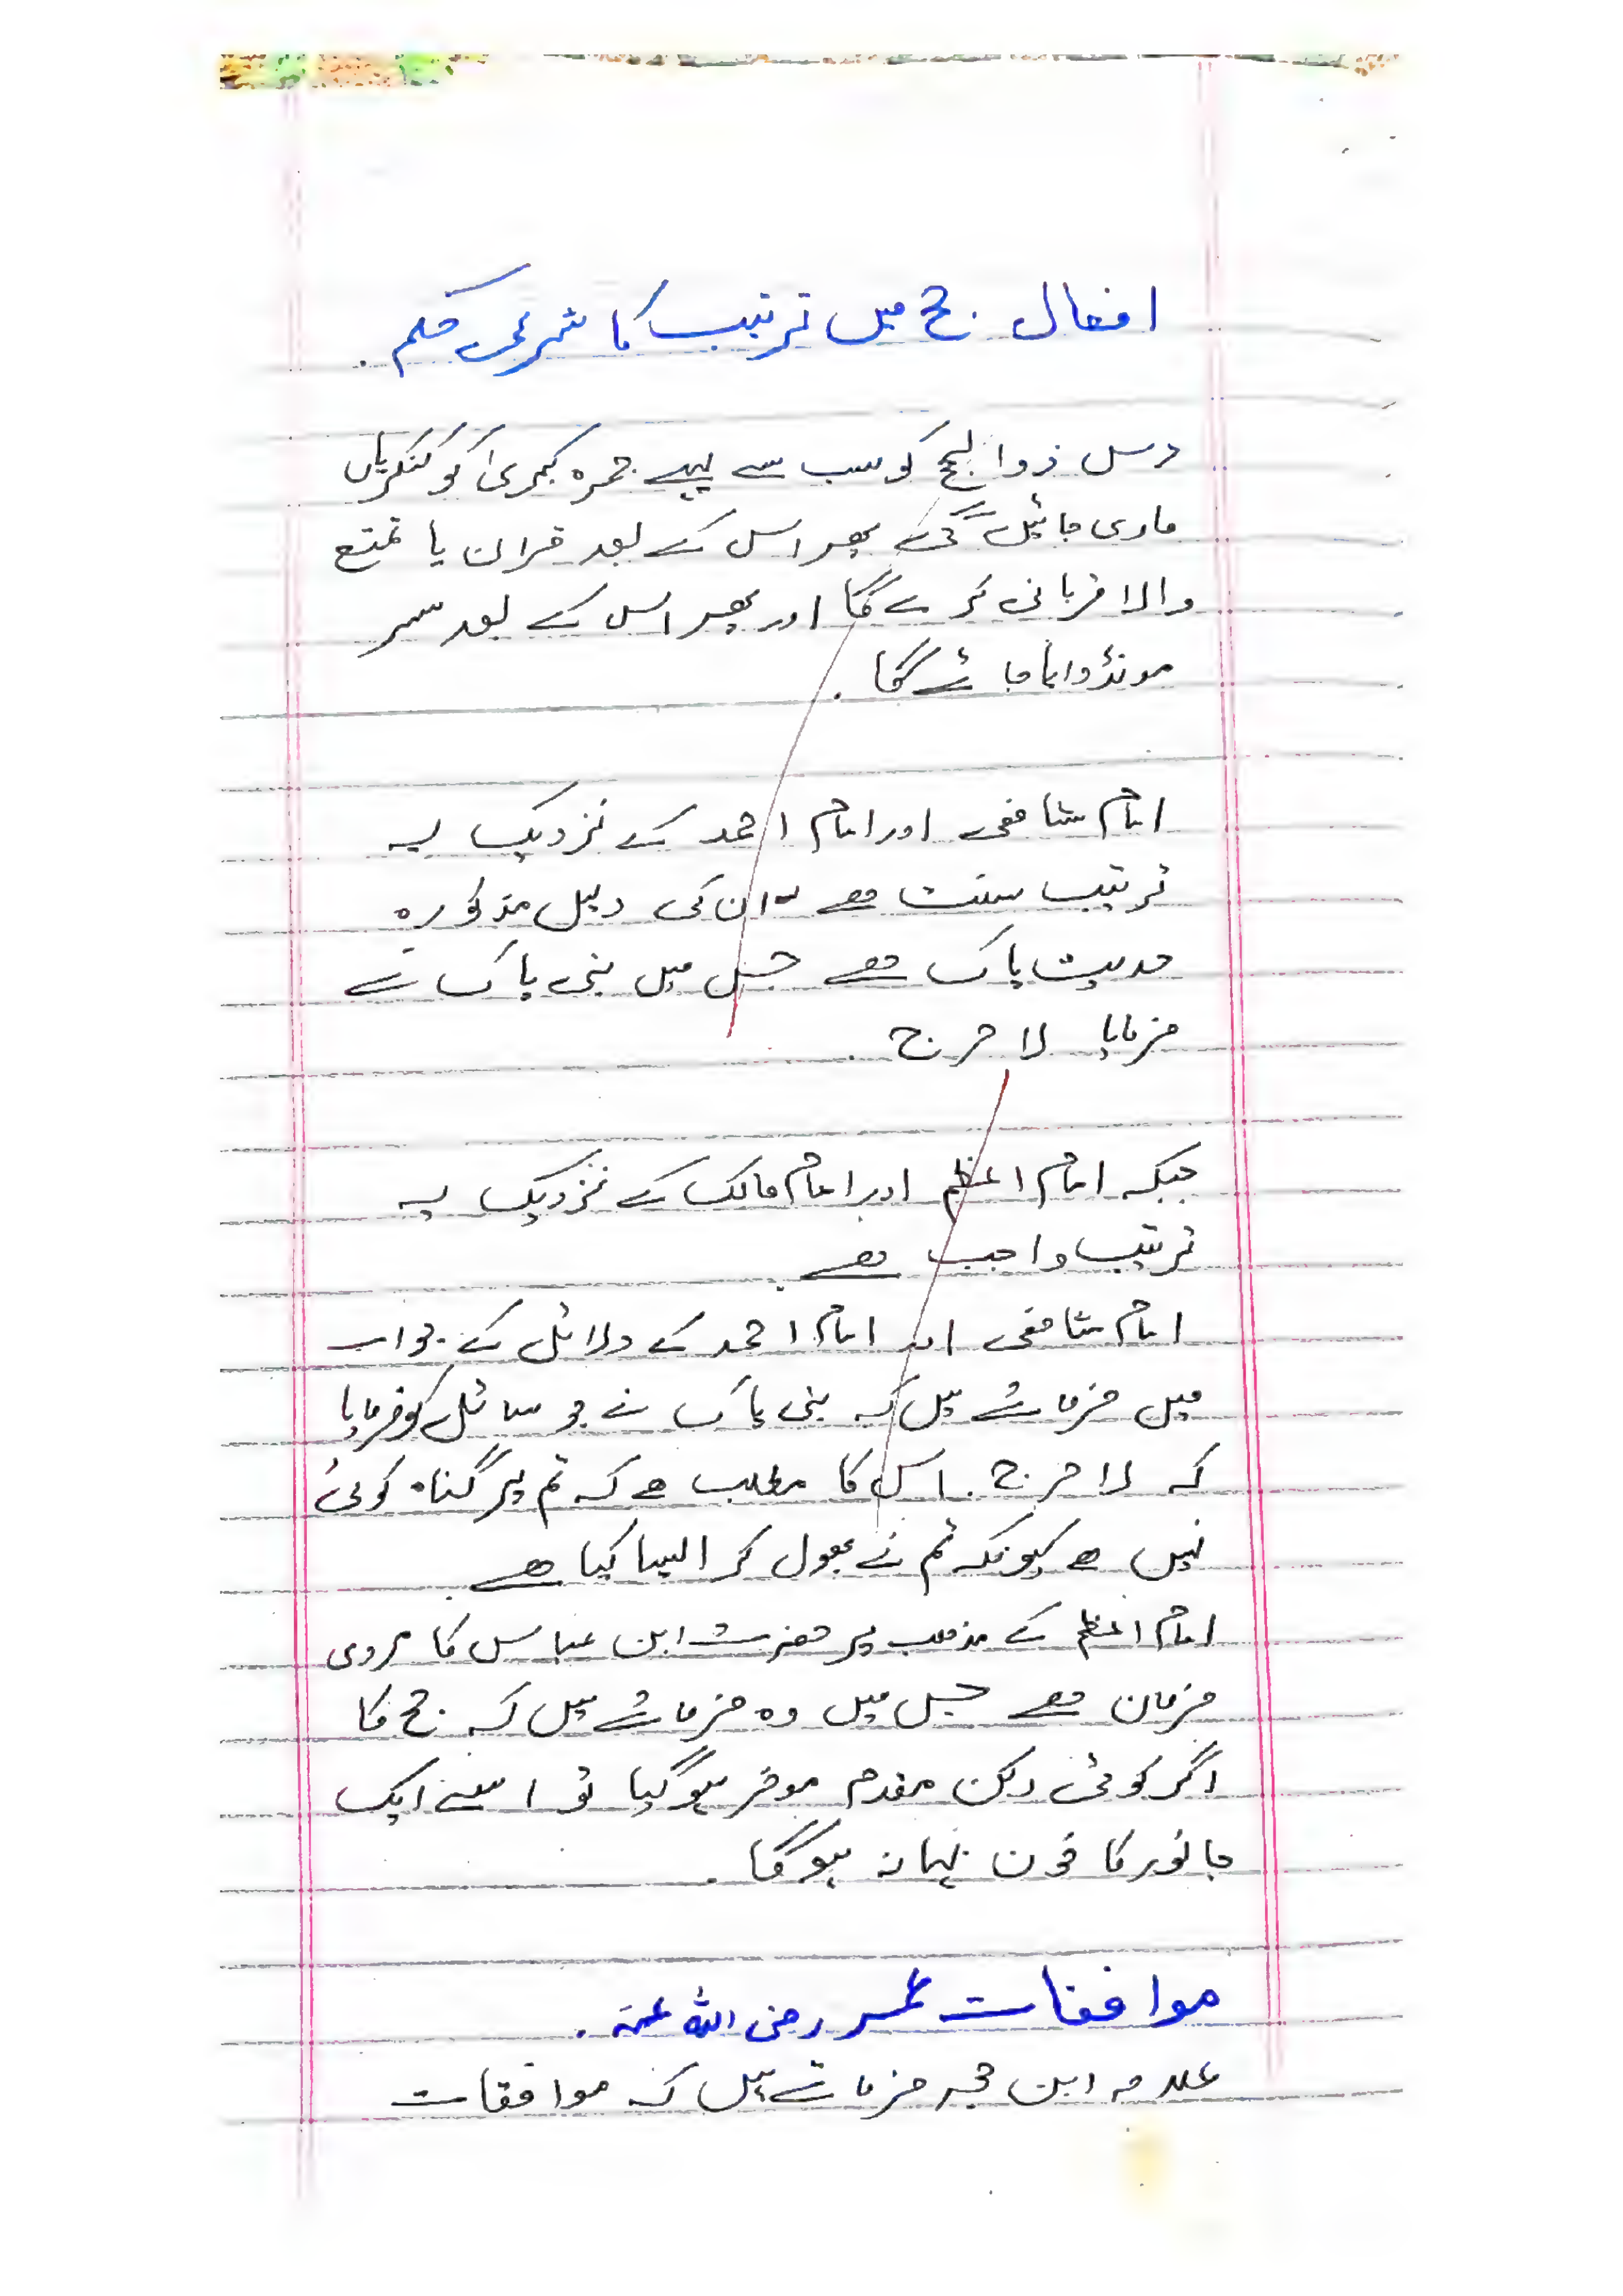 افعال حج میں ترتیب کا شرعی حکم ۔
دس ذوالحج کو سب سے پہلے جمرہ کبریٰ کو کنکریاں
ماری جائیں گی پھر اس کے بعد قران یا تمتع
والا قربانی کرے گا اور پھر اس کے بعد سر
مونڈوایا جائے گا ۔
امام شافعی اور امام احمد کے نزدیک یہ
ترتیب سنت ھے ان کی دلیل مذکورہ
حدیث پاک ھے جس میں نبی پاک نے
فرمایا لا حرج ۔
جبکہ امام اعظم اور امام مالک کے نزدیک یہ
ترتیب واجب ھے ۔
امام شافعی اور امام احمد کے دلائل کے جواب
میں فرماتے ہیں کہ نبی پاک نے جو سائل کو فرمایا
کہ لا حرج ۔ اس کا مطلب ھے کہ تم پر گناہ کوئی
نہیں ھے کیونکہ تم نے بھول کر ایسا کیا ھے ۔
امام اعظم کے مذھب پر حضرت ابن عباس کا مروی
فرمان ھے جس میں وہ فرماتے ہیں کہ حج کا
اگر کوئی رکن مقدم موخر ہو گیا تو اسے ایک
جانور کا خون بہانہ ہوگا ۔
موافقات عمر رضی اللہ عنہ ۔
علامہ ابن حجر فرماتے ہیں کہ موافقات